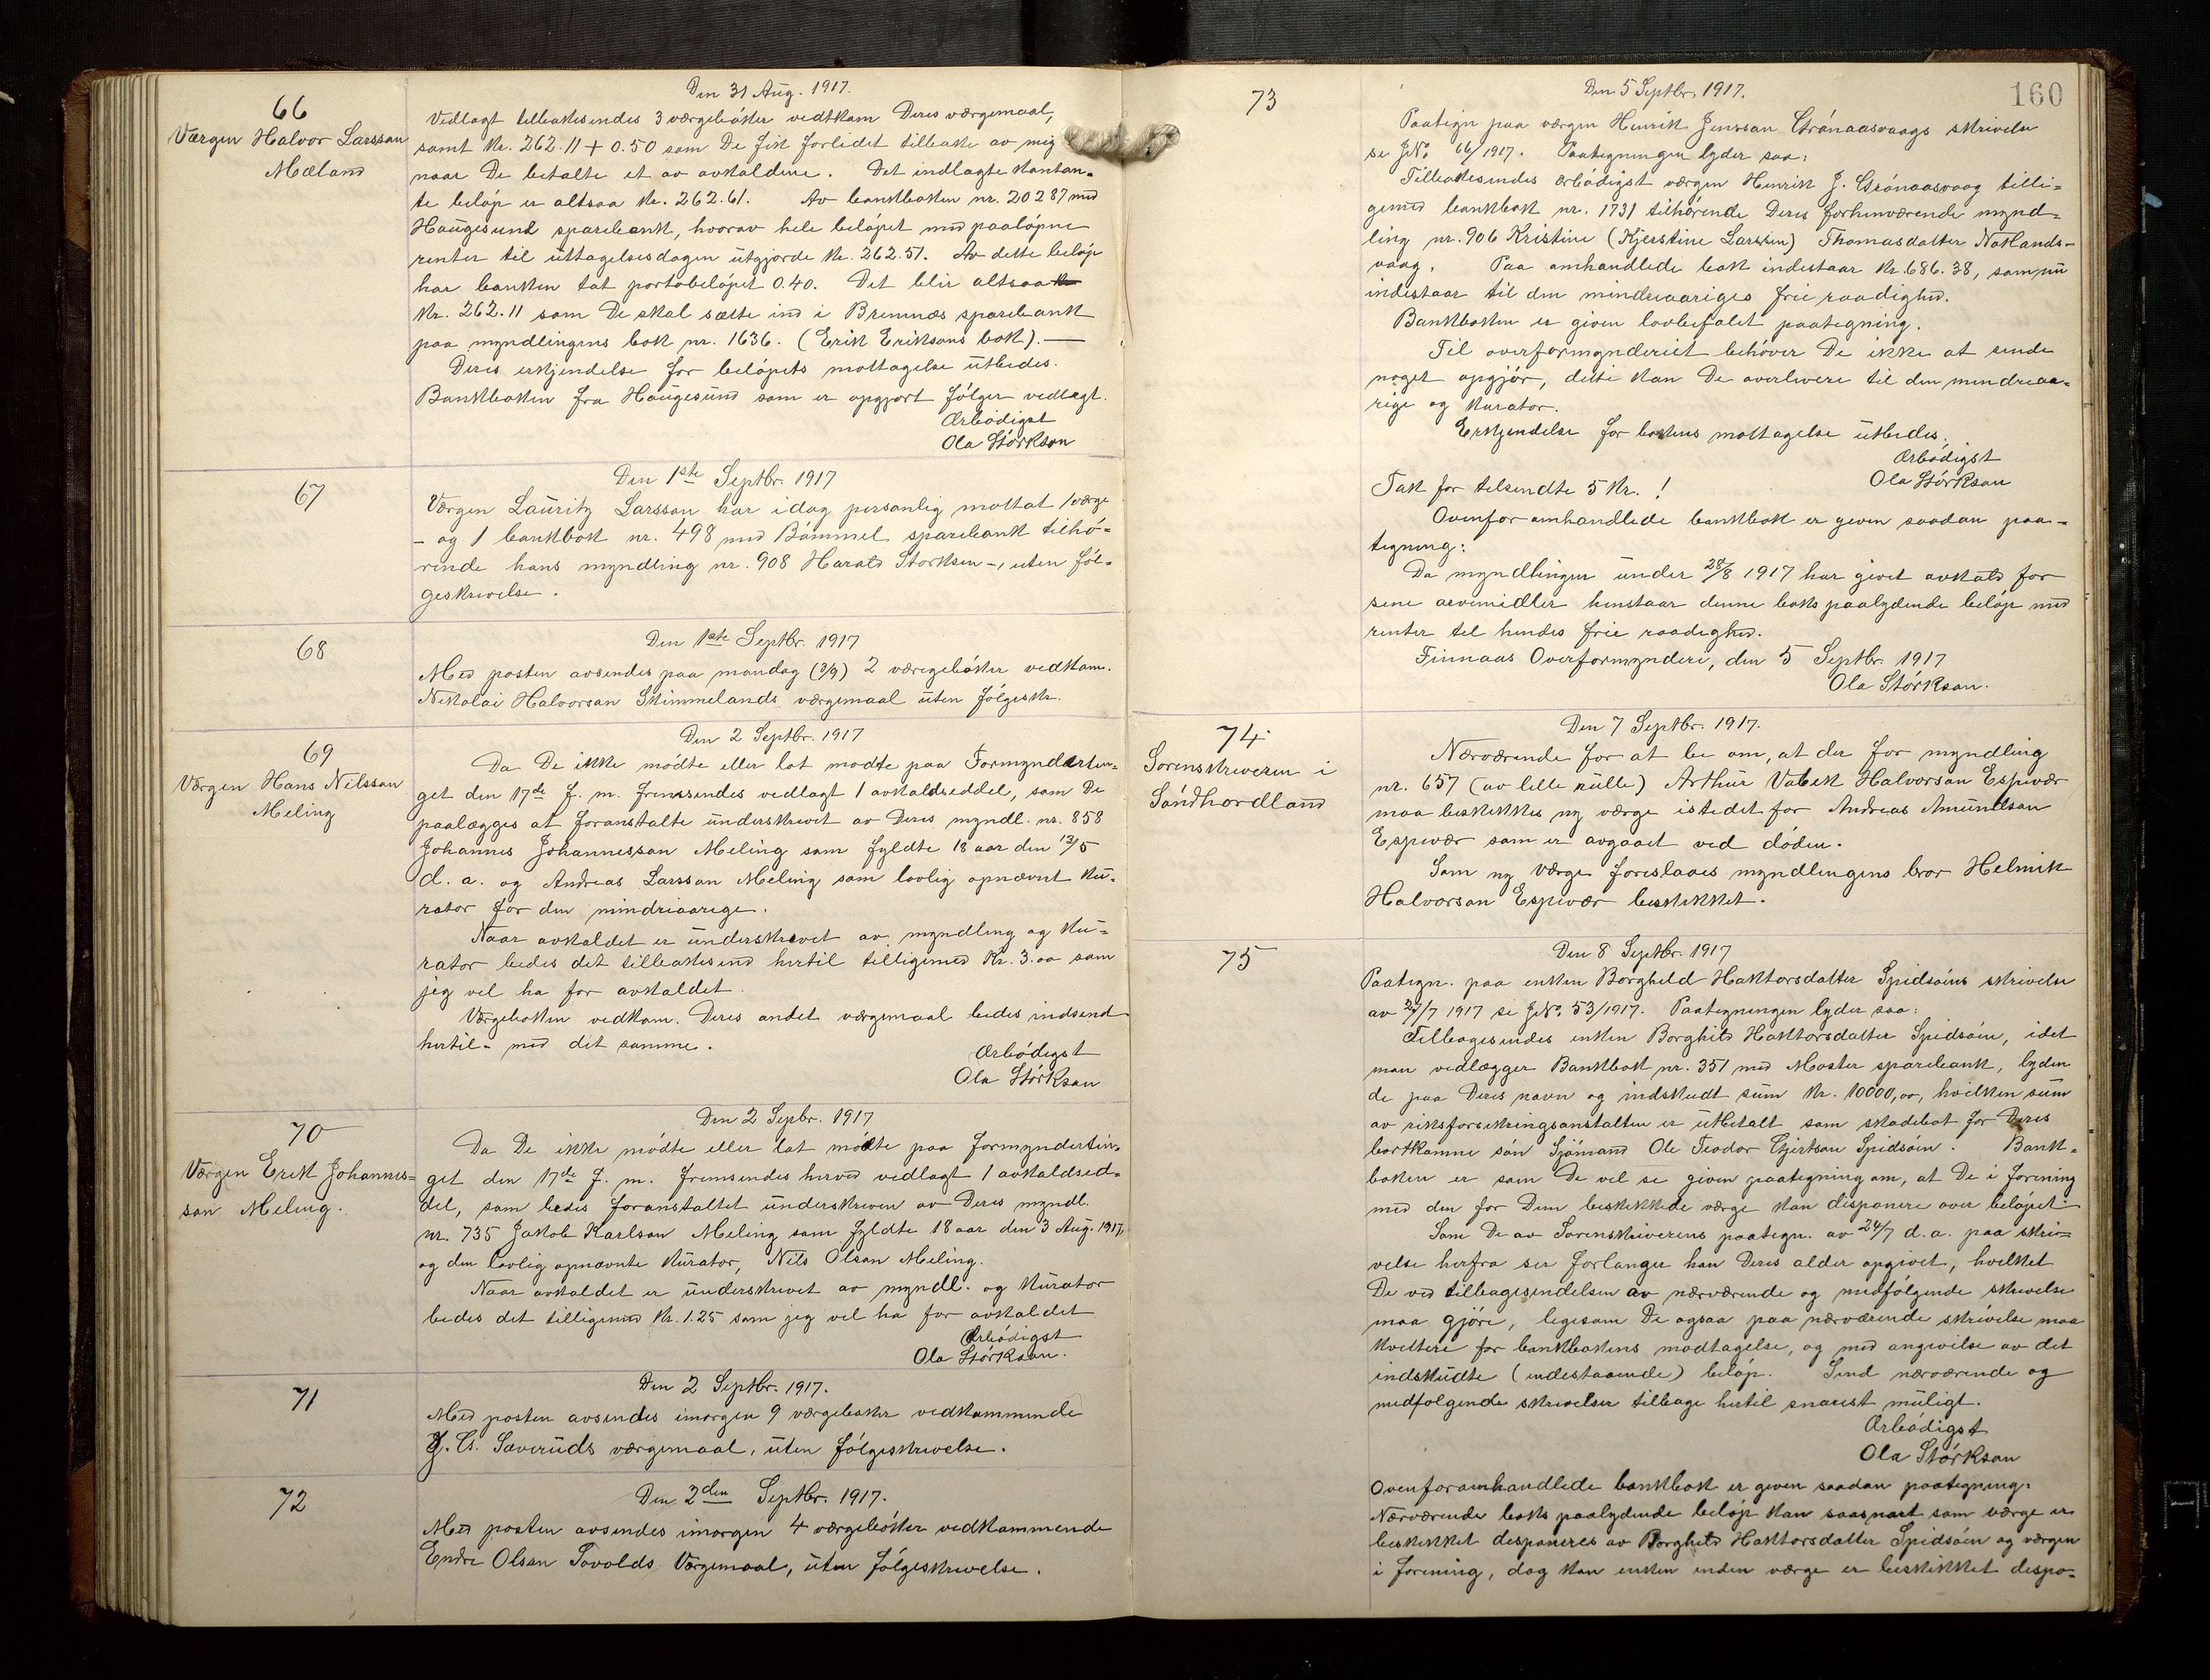 66
Værgen Halvor Larsson
Mæland
Den 31 Aug. 1917.
Vedlagt tilbakesendes 3 værgebøker vedkom Deres værgemaal,
samt kr. 262.11 + 0.50 som De fik forlidet tilbake av mig
naar De betalte et av avkaldene. Det indlagte kontan-
te beløp er altsaa kr. 262.61. Av bankboken nr. 20287 med
Haugesund sparebank, hvorav hele beløpet med paaløpne
renter til uttagelsesdagen utgjorde kr. 262.51. Av dette beløp
har banken tat portobeløpet 0.40. Det blir altsaa
kr. 262.11 som De skal sætte ind i Bremnæs sparebank
paa myndlingens bok nr. 1636. (Erik Eriksons bok). —
Deres erkjendelse for beløpets mottagelse utbedes.
Bankboken fra Haugesund som er opgjort følger vedlagt.
Ærbødigst
Ola Størkson
67
Den 1ste Septbr. 1917
Værgen Lauritz Larsson har idag personlig mottat 1 værge
- og 1 bankbok nr. 498 med Bømmel sparebank tilhø-
rende hans myndling nr. 908 Harald Storksen -, uten føl-
geskrivelse.
68
Den 1ste Septbr. 1917
Med posten avsendes paa mandag (3/9) 2 værgebøker vedkom.
Nikolai Halvorson Skimmelands værgemaal uten følgeskr.
69
Værgen Hans Nilsson
Meling
Den 2 Septbr. 1917
Da De ikke mødte eller lot mødte paa Formynderten-
get den 17de f. m. fremsendes vedlagt 1 avkaldseddel, som De
paalægges at foranstalte underskrevet av Deres myndl. nr. 858
Johannes Johannesson Meling som fyldte 18 aar den 13/5
d. a. og Andreas Larsson Meling som lovlig opnævnt ku-
rator for den mindreaarige.
Naar avkaldet er underskrevet av myndling og ku-
rator bedes det tilbakesend hertil tilligemed Kr. 3.00 som
jeg vil ha for avkaldet.
Værgeboken vedkom. Deres andet værgemaal bedes indsend
hertil - med det samme.
Ærbødigst
Ola Størkson
70
Værgen Erik Johannes-
son Meling.
Den 2 Sepbr. 1917
Da De ikke mødte eller lot mødte paa formyndertin-
get den 17de f. m. fremsendes herved vedlagt 1 avkaldsed-
del, som bedes foranstaltet underskreven av Deres myndl.
nr. 735 Jakob Karlson Meling som fyldte 18 aar den 3 Aug. 1917,
og den lovlig opnævnte kurator, Nils Olson Meling.
Naar avkaldet er underskrevet av myndl. og kurator
bedes det tilligemed kr. 1.25 som jeg vil ha for avkaldet
Ærbødigst
Ola Størkson.
71
Den 2 Septbr. 1917.
Med posten avsendes imorgen 9 værgebøker vedkommende
G. Sæveruds værgemaal, uten følgeskrivelse.
72
Den 2den Septbr. 1917.
Med posten avsendes imorgen 4 værgebøker vedkommende
Endre Olson Tovolds Værgemaal, uten følgeskrivelse.
160
73
Den 5 Septbr. 1917.
Paategn paa værgen Henrik Jensson Grønaasvaags skrivelse
se JNo 66/1917. Paategningen lyder saa:
Tilbakesendes ærbødigst værgen Henrik J. Grønaasvaag tilli-
gemed bankbok nr. 1731 tilhørende Deres forhenværende mynd-
ling nr. 906 Kristine (Kjerstine Larssen) Thomasdatter Notlands-
vaag. Paa omhandlede bok indestaar kr. 686.38, som nu
indestaar til den mindreaariges frie raadighed.
Bankboken er given lovbefalet paategning.
Til overformynderiet behøver De ikke at sende
noget opgjør, dette kan De overlevere til den mindreaa-
rige og kurator.
Erkjendelse for bokens mottagelse utbedes.
Ærbødigst
Ola Størkson
Tak for tilsendte 5 Kr. !
Ovenfor omhandlede bankbok er given saadan paa-
tegning:
Da myndlingen under 28/8 1917 har givet avkald for
sine arvemidler henstaar denne boks paalydende beløp med
renter til hendes frie raadighed.
Finnaas Overformynderi, den 5 Septbr. 1917
Ola Størkson.
74
Sorenskriveren i
Søndhordland
Den 7 Septbr. 1917.
Nærværende for at be om, at der for myndling
nr. 657 (av lille rulle) Arthur Valek Halvorson Espevær
maa beskikkes ny værge istedet for Andreas Amundson
Espevær som er avgaaet ved døden.
Som ny værge foreslaaes myndlingens bror Helmik
Halvorson Espevær beskikket.
75
Den 8 Septbr. 1917
Paategn. paa enken Borghild Haktorsdatter Spidsøens skrivelse
av 27/7 1917 se JNo. 53/1917. Paategningen lyder saa:
Tilbagesendes enken Borghild Haktorsdatter Spidsøen, idet
man vedlægger Bankbok nr. 351 med Moster sparebank, lyden
de paa Deres navn og indskudt sum kr. 10000,00, hvilken sum
av riksforsikringsanstalten er utbetalt som skadebot for Deres
bortkomne søn Sjømand Ole Teodor Gjertson Spidsøen. Bank-
boken er som De vil se given paategning om, at De i forening
med den for Dem beskikkede værge kan disponere over beløpet.
Som De av Sorenskriverens paategn. av 24/7 d. a. paa skri-
velse herfra ser forlanger han Deres alder opgivet, hvilket
De ved tilbagesendelsen av nærværende og medfølgende skrivelse
maa gjøre, legesom De ogsaa paa nærværende skrivelse maa
kvittere for bankbokens modtagelse, og med angivelse av det
indskudte (indestaaende) beløp. Send nærværende og
medfølgende skrivelser tilbage hertil snarest muligt.
Ærbødigst
Ola Størkson
Ovenforomhandlede bankbok er given saadan paategning:
Nærværende boks paalydende beløp kan saasnart som værge er
beskikket desponeres av Borghild Haktorsdatter Spidsøen og værgen
i forening, dog kan enken inden værge er beskikket despo-